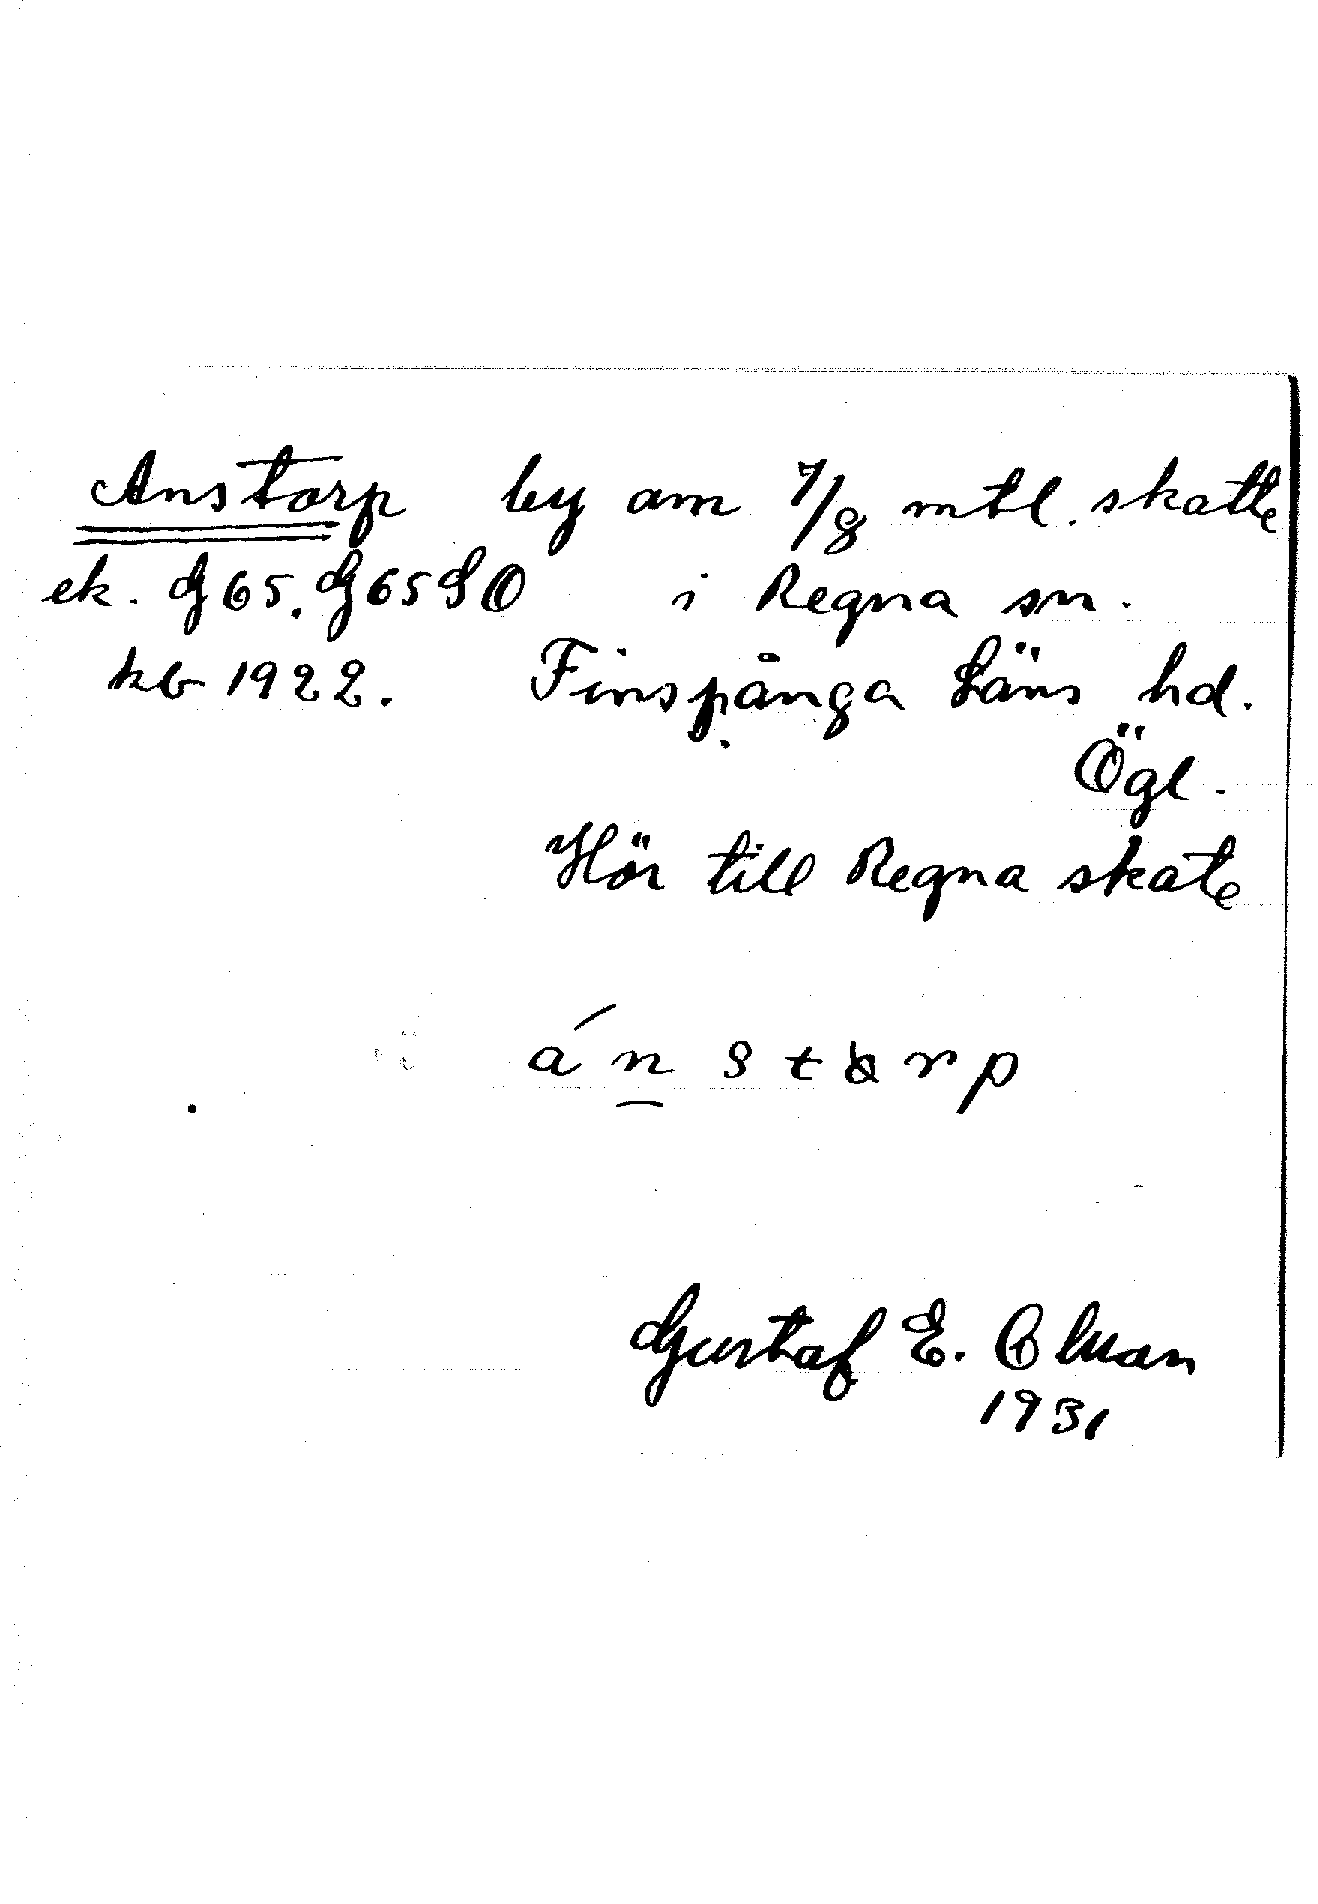 Anstorp by om 7/8 mtl. skatte
ek. G65. G65SO i Regna sn.
kb 1922. Finspånga Läns hd.
Ögl.
Hör till Regna skate
Gustaf E.
1931